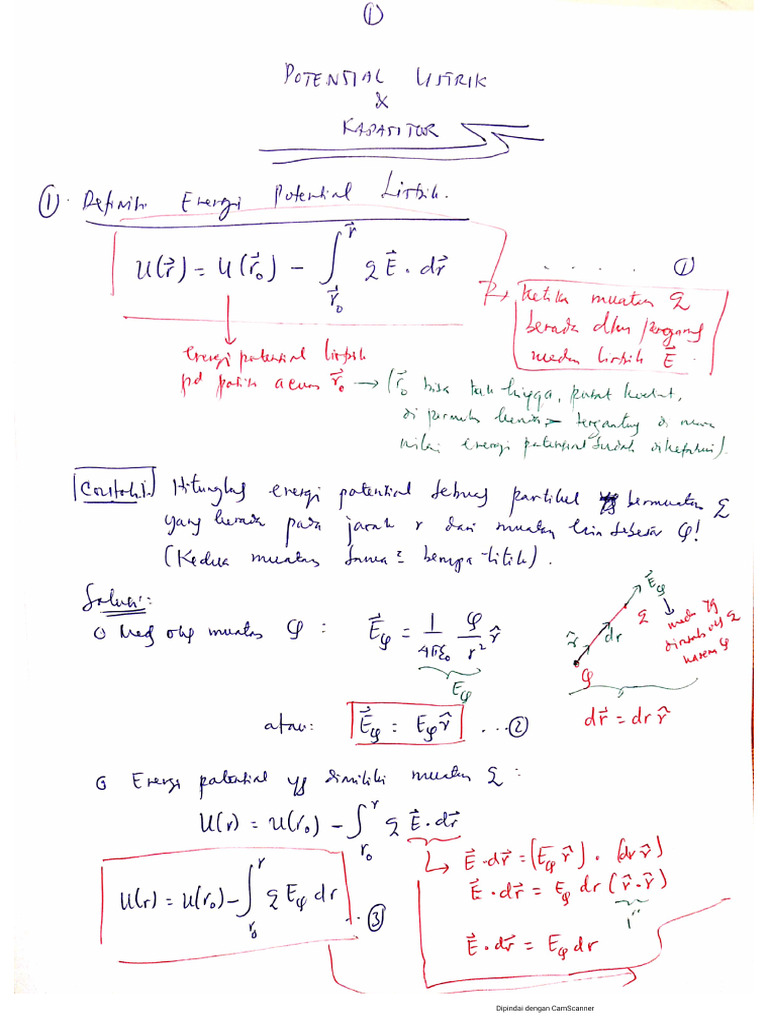 ①
POTENSIAL LISTRIK
&
KAPASITOR
① Definisi Energi Potensial Listrik.
U(r⃗) = U(r⃗₀) − ∫_{r⃗₀}^{r⃗} q E⃗ · dr⃗ . . . . . ①
→ Ketika muatan q
berada dlm pengaruh
medan listrik E⃗.
energi potensial listrik
pd posisi acuan r⃗₀ → (r⃗₀ bisa tak hingga, pusat koordinat,
di permukaan benda, tergantung di mana
nilai energi potensial sudah diketahui).
Contoh 1. Hitunglah energi potensial sebuah partikel bermuatan q
yang berada pada jarak r dari muatan lain sebesar Q!
(Kedua muatan sama² berupa titik).
Solusi:
Med oleh muatan Q : E⃗_Q = 1/(4πε₀) Q/r² r̂
E_Q
E⃗_Q
q
dr
r̂
Q
medan yg
dirasakan oleh q
karena Q
dr⃗ = dr r̂
atau: E⃗_Q = E_Q r̂ ... ②
Energi potensial yg dimiliki muatan q :
U(r) = U(r₀) − ∫_{r₀}^{r} q E⃗ · dr⃗
↳ E⃗ · dr⃗ = (E_Q r̂) · (dr r̂)
E⃗ · dr⃗ = E_Q dr (r̂ · r̂)
1
E⃗ · dr⃗ = E_Q dr
U(r) = U(r₀) − ∫_{r₀}^{r} q E_Q dr .. ③
Dipindai dengan CamScanner